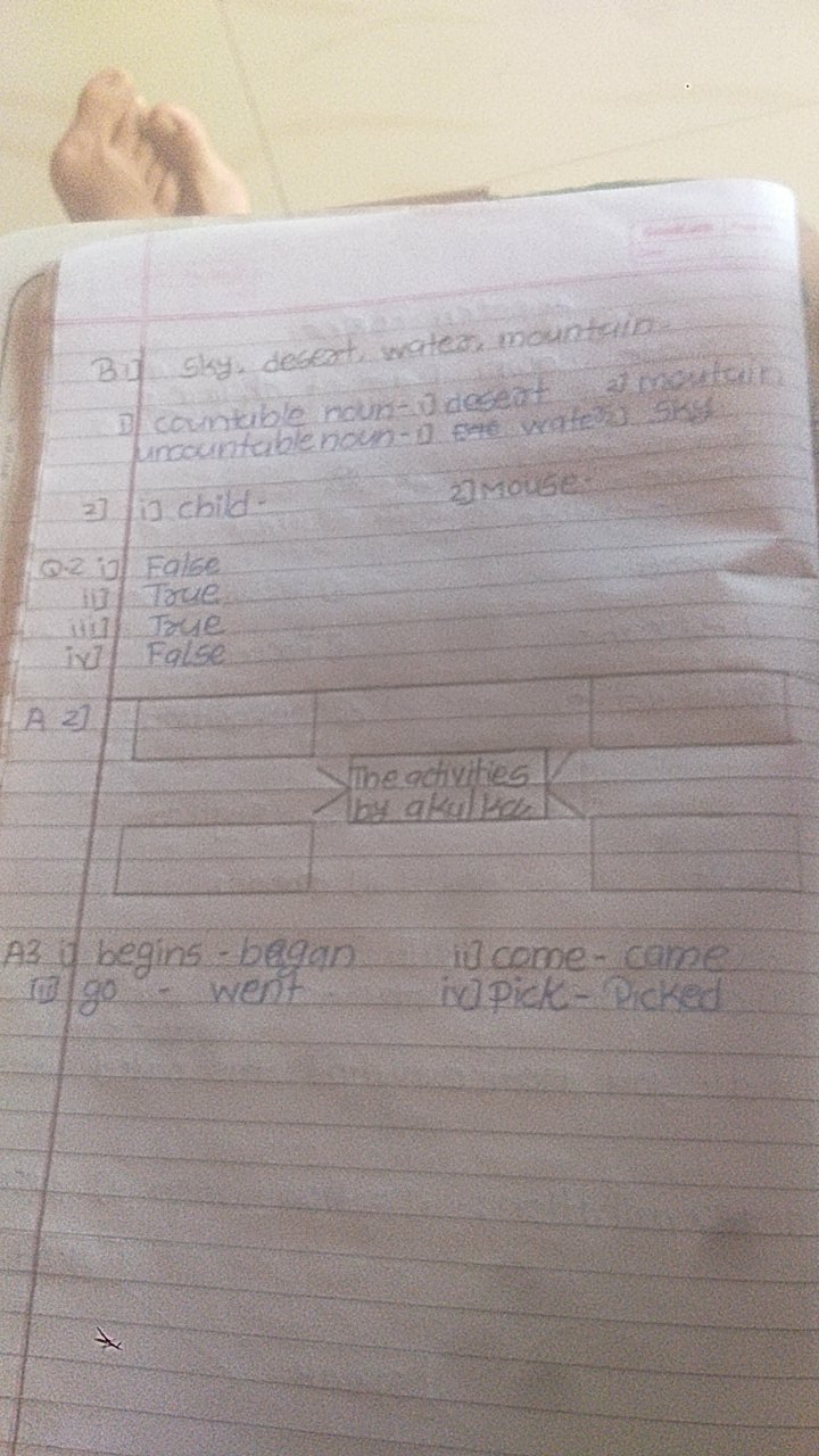 B 1] Sky, desert, water, mountain
1] countable noun- 1] desert 2] moutain
uncountable noun-1] water 2] Sky
2] i] child - 2] Mouse-
Q.2 i] False
ii] True
iii] True
iv] False
A 2]
The activities
by akulkar
A3 i] begins - began ii] come - came
iii] go - went iv] Pick - Picked